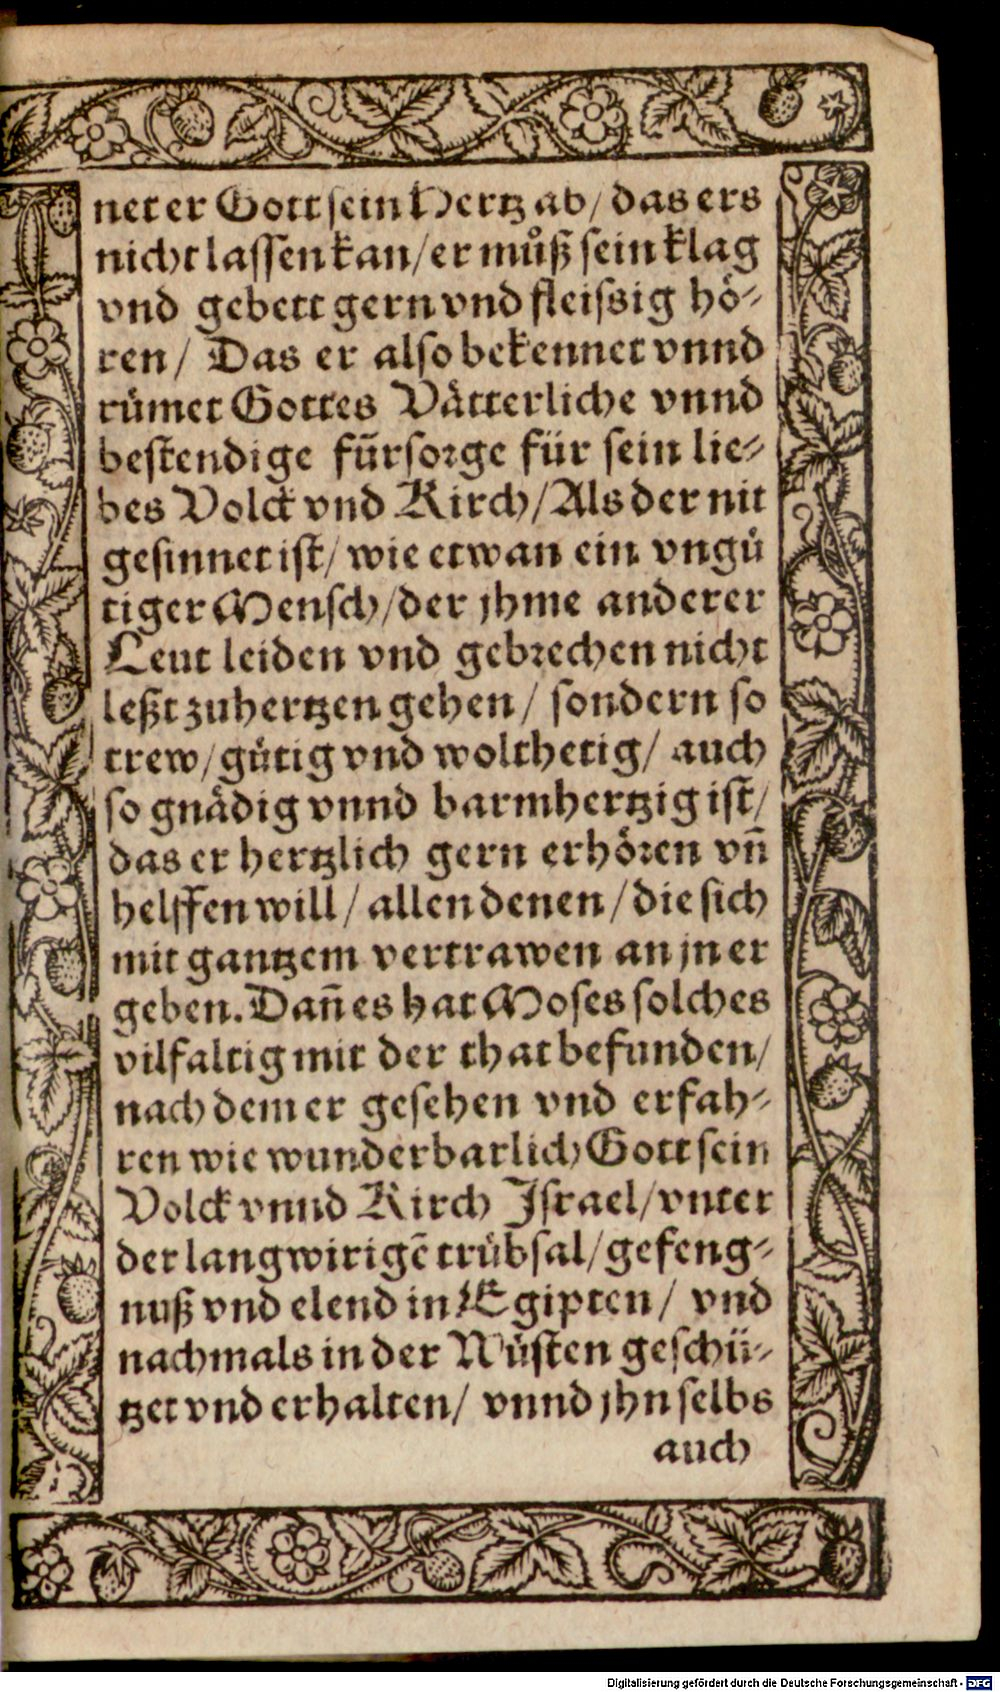 net er Gott sein Hertz ab/ das ers
nicht lassen kan/ er můß sein klag
vnd gebett gern vnd fleissig hö-
ren/ Das er also bekennet vnnd
rümet Gottes Vätterliche vnnd
bestendige fürsorge für sein lie-
bes Volck vnd Kirch/ Als der nit
gesinnet ist/ wie etwan ein vngů
tiger Mensch/ der jhme anderer
Leut leiden vnd gebrechen nicht
leßt zuhertzen gehen/ sondern so
trew/ gütig vnd wolthetig/ auch
so gnädig vnnd barmhertzig ist/
das er hertzlich gern erhören vñ
helffen will/ allen denen/ die sich
mit gantzem vertrawen an jn er
geben. Dañ es hat Moses solches
vilfaltig mit der that befunden/
nach dem er gesehen vnd erfah-
ren wie wunderbarlich Gott sein
Volck vnnd Kirch Israel/ vnter
der langwirigẽ trübsal/ gefeng-
nuß vnd elend in Egipten/ vnd
nachmals in der Wüsten geschü-
tzet vnd erhalten/ vnnd jhn selbs
auch
Digitalisierung gefördert durch die Deutsche Forschungsgemeinschaft - DFG